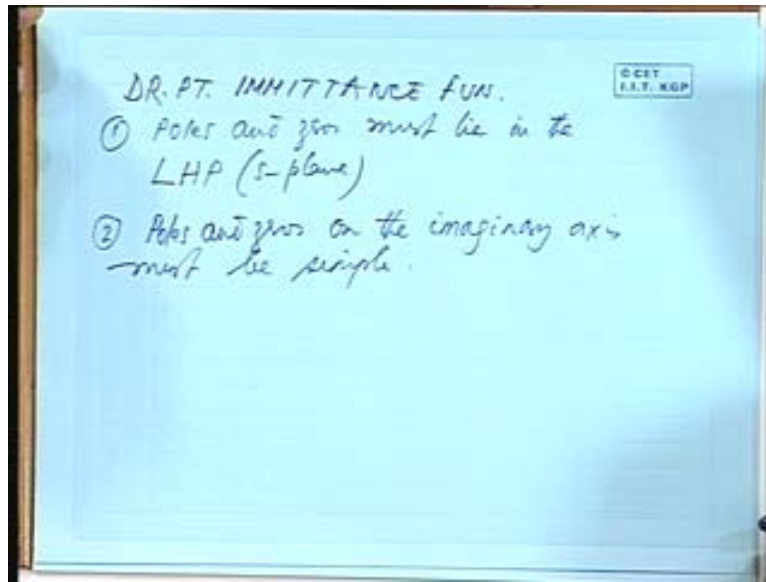 DR. PT. IMMITTANCE FUN.
© CET
I.I.T. KGP
① Poles and zeros must lie in the
LHP (s-plane)
② Poles and zeros on the imaginary axis
must be simple.